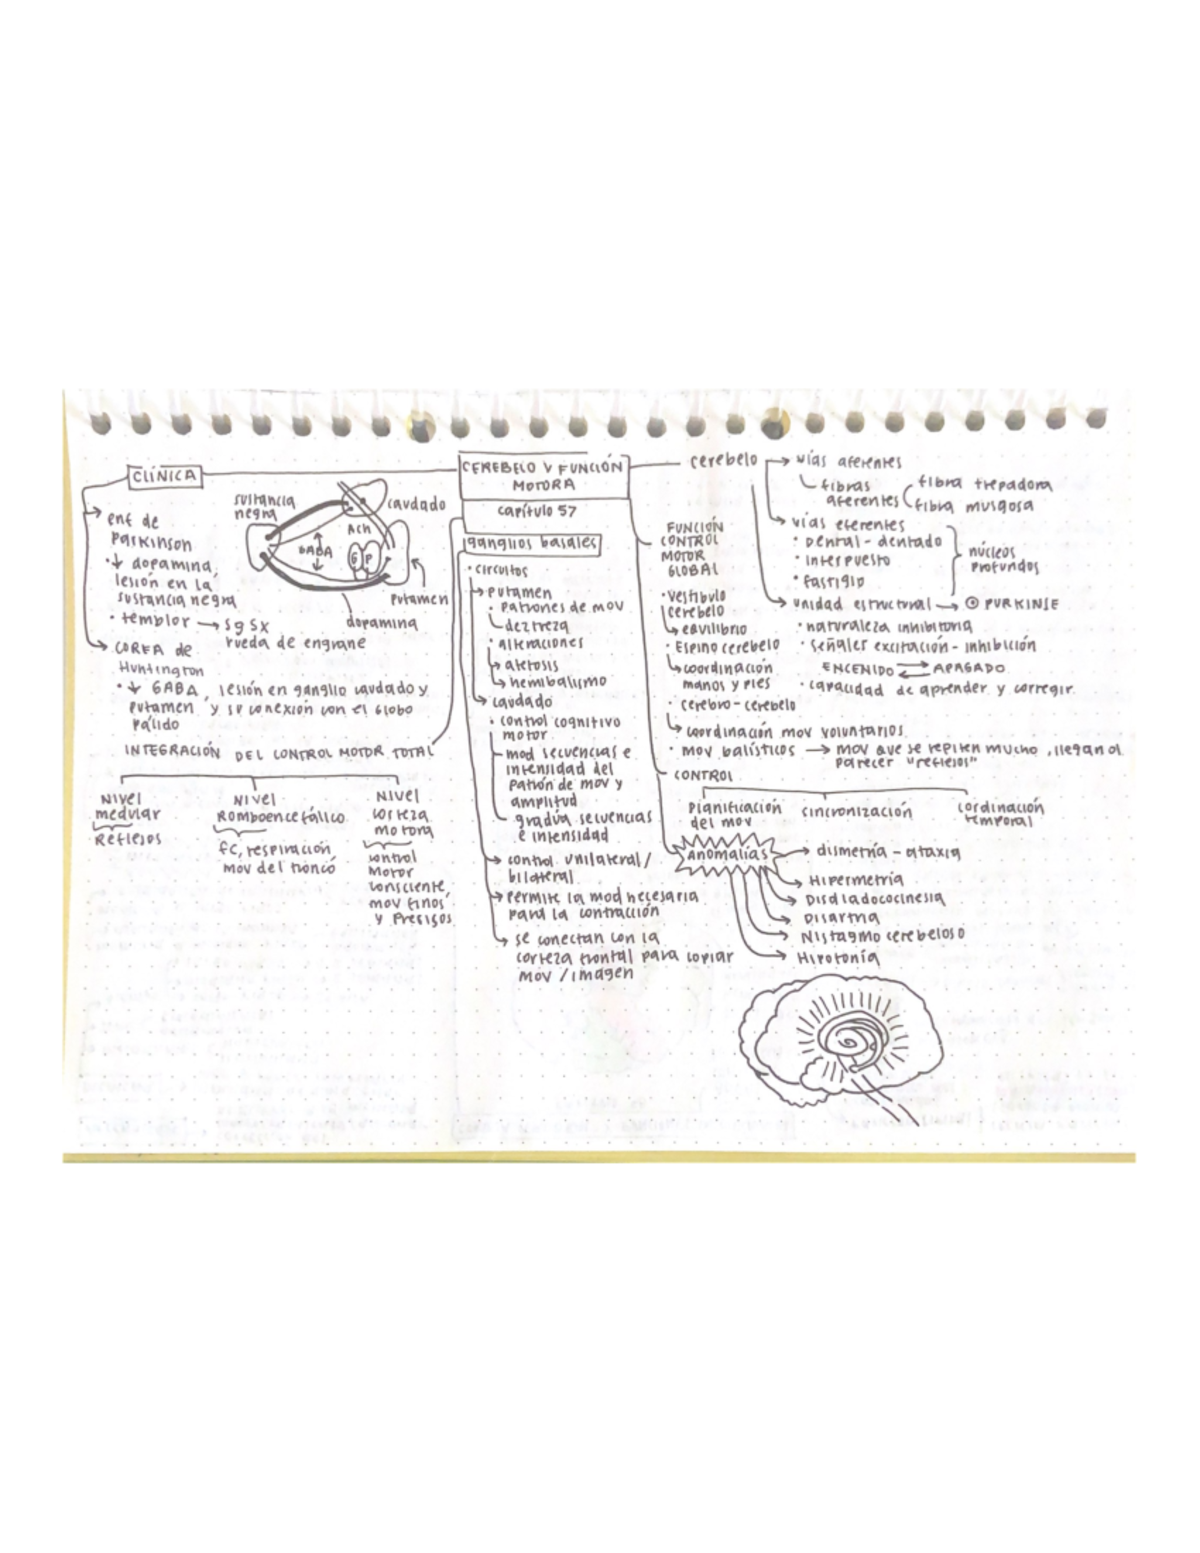 CLÍNICA
enf de
Parkinson
• ↓ dopamina,
lesión en la
sustancia negra
• temblor → sg sx
rueda de engrane
sustancia
negra
caudado
ACh
GABA
G P
Putamen
dopamina
COREA de
Huntington
• ↓ GABA, lesión en ganglio caudado y
putamen y su conexión con el Globo
Pálido
INTEGRACIÓN DEL CONTROL MOTOR TOTAL
Nivel
medular
Reflejos
Nivel
Romboencefálico
FC, respiración,
mov del tronco
Nivel
corteza
motora
control
motor
consciente,
mov finos
y precisos
CEREBELO Y FUNCIÓN
MOTORA
capítulo 57
ganglios basales
• circuitos
→ putamen
• patrones de mov
dezтreza
• alteraciones
→ atetosis
→ hemibalismo
→ caudado
• control cognitivo
motor
mod secuencias e
intensidad del
patrón de mov y
amplitud
gradúa secuencias
e intensidad
→ control unilateral/
bilateral
→ Permite la mod necesaria
para la contracción
→ se conectan con la
corteza frontal para copiar
mov / imagen
cerebelo
→ vías aferentes
fibras
aferentes
fibra trepadora
fibra musgosa
→ vías eferentes
• dentral - dentado
• interpuesto
• fastigio
núcleos
profundos
→ unidad estructural → PURKINJE
• naturaleza inhibitoria
• señales excitación - inhibición
ENCENDIDO ⇄ APAGADO
• capacidad de aprender y corregir.
FUNCIÓN
CONTROL
MOTOR
GLOBAL
• vestíbulo
cerebelo
→ equilibrio
• Espino cerebelo
→ coordinación
manos y pies
• cerebro - cerebelo
→ coordinación mov voluntarios.
• mov balísticos → mov que se repiten mucho, llegan a
parecer "reflejos"
CONTROL
Planificación
del mov
sincronización
cordinación
temporal
Anomalías
→ dismetría - ataxia
→ Hipermetría
→ Disdiadococinesia
→ Disartria
→ Nistagmo cerebeloso
→ Hipotonía